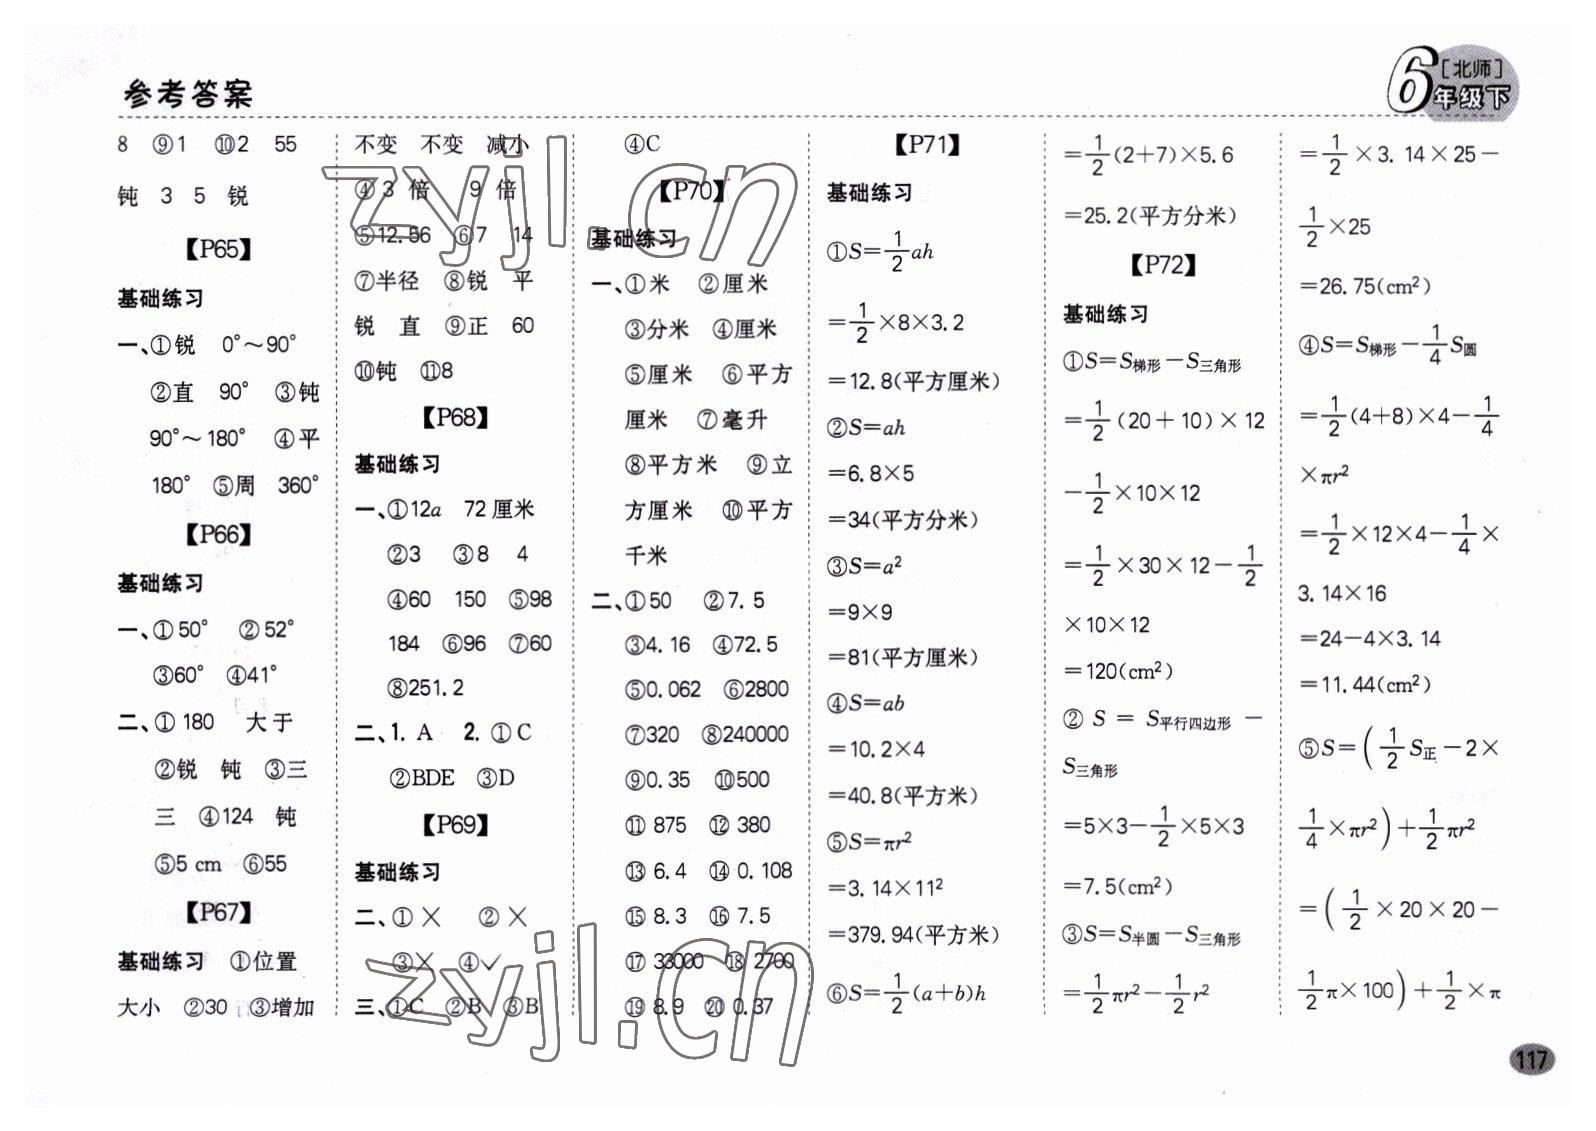 参考答案
6 [北师]
年级下
8 ⑨1 ⑩2 55
钝 3 5 锐
【P65】
基础练习
一、①锐 0°～90°
②直 90° ③钝
90°～180° ④平
180° ⑤周 360°
【P66】
基础练习
一、①50° ②52°
③60° ④41°
二、①180 大于
②锐 钝 ③三
三 ④124 钝
⑤5 cm ⑥55
【P67】
基础练习 ①位置
大小 ②30 ③增加
不变 不变 减小
④3 倍 9 倍
⑤12.56 ⑥7 14
⑦半径 ⑧锐 平
锐 直 ⑨正 60
⑩钝 ⑪8
【P68】
基础练习
一、①12a 72厘米
②3 ③8 4
④60 150 ⑤98
184 ⑥96 ⑦60
⑧251.2
二、1. A 2. ①C
②BDE ③D
【P69】
基础练习
二、①× ②×
③× ④✓
三、①C ②B ③B
④C
【P70】
基础练习
一、①米 ②厘米
③分米 ④厘米
⑤厘米 ⑥平方
厘米 ⑦毫升
⑧平方米 ⑨立
方厘米 ⑩平方
千米
二、①50 ②7.5
③4.16 ④72.5
⑤0.062 ⑥2800
⑦320 ⑧240000
⑨0.35 ⑩500
⑪875 ⑫380
⑬6.4 ⑭0.108
⑮8.3 ⑯7.5
⑰33000 ⑱2700
⑲8.9 ⑳0.37
【P71】
基础练习
①S=1/2ah
=1/2×8×3.2
=12.8(平方厘米)
②S=ah
=6.8×5
=34(平方分米)
③S=a²
=9×9
=81(平方厘米)
④S=ab
=10.2×4
=40.8(平方米)
⑤S=πr²
=3.14×11²
=379.94(平方米)
⑥S=1/2(a+b)h
=1/2(2+7)×5.6
=25.2(平方分米)
【P72】
基础练习
①S=S梯形－S三角形
=1/2(20+10)×12
－1/2×10×12
=1/2×30×12－1/2
×10×12
=120(cm²)
② S = S平行四边形 －
S三角形
=5×3－1/2×5×3
=7.5(cm²)
③S=S半圆－S三角形
=1/2πr²－1/2r²
=1/2×3.14×25－
1/2×25
=26.75(cm²)
④S=S梯形－1/4S圆
=1/2(4+8)×4－1/4
×πr²
=1/2×12×4－1/4×
3.14×16
=24－4×3.14
=11.44(cm²)
⑤S=(1/2S正－2×
1/4×πr²)+1/2πr²
=(1/2×20×20－
1/2π×100)+1/2×π
117
zyjl.cn
zyjl.cn